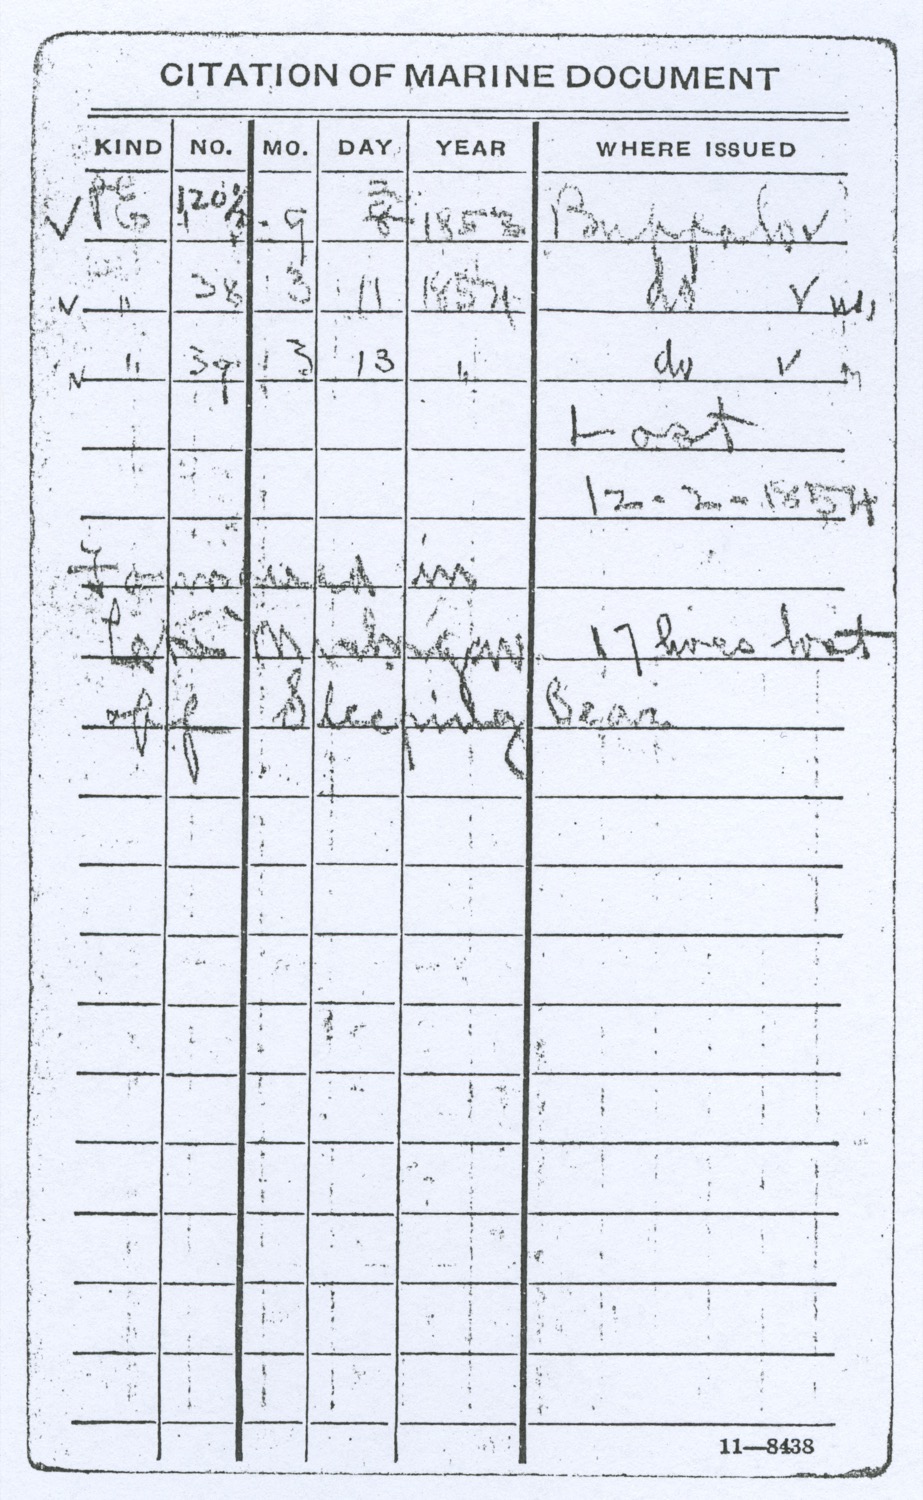 CITATION OF MARINE DOCUMENT
KIND NO. MO. DAY YEAR WHERE ISSUED
✓ PE 120½ 9 1853 Buffalo ✓
✓ " 38 3 11 1854 do ✓
✓ " 39 3 13 " do ✓
Lost
12-2-1854
Foundered in
Lake Michigan 17 lives lost
off Sleeping Bear
11—8438